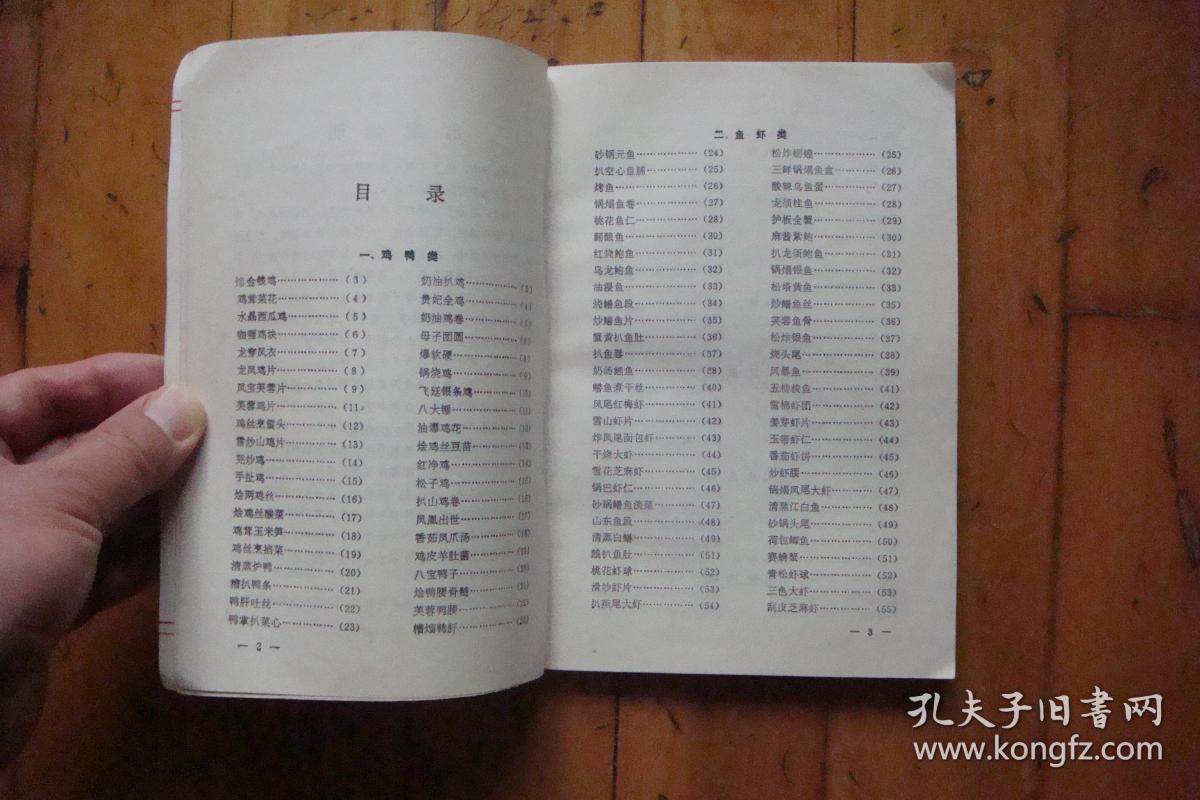 目 录
一、鸡 鸭 类
金钱鸡……………(3) 奶油扒鸡……………
鸡茸菜花……………(4) 贵妃全鸡……………
水晶西瓜鸡……………(5) 奶油鸡卷……………
咖喱鸡块……………(6) 母子团圆……………
龙穿凤衣……………(7) 爆软硬……………
龙凤鸡片……………(8) 锅烧鸡……………
凤宝芙蓉片……………(9) 飞廷银条鸡……………(10)
芙蓉鸡片……………(11) 八大锤……………(11)
鸡丝烹蜇头……………(12) 油爆鸡花……………
雪炒山鸡片……………(13) 烩鸡丝豆苗……………
芫炒鸡……………(14) 红净鸡……………
手扯鸡……………(15) 松子鸡……………
烩两鸡丝……………(16) 扒山鸡卷……………
烩鸡丝酸菜……………(17) 凤凰出世……………(17)
鸡茸玉米笋……………(18) 香茹凤爪汤……………(18)
鸡丝烹掐菜……………(19) 鸡皮羊肚菌……………
清蒸炉鸭……………(20) 八宝鸭子……………
糟扒鸭条……………(21) 烩鸭腰脊髓……………
鸭肝吐丝……………(22) 芙蓉鸭腰……………
鸭掌扒菜心……………(23) 糟煨鸭肝……………
— 2 —
二、鱼 虾 类
砂锅元鱼……………(24) 松炸螃蟹……………(25)
扒空心鱼脯……………(25) 三鲜锅爆鱼盒……………(26)
烤鱼……………(26) 酸辣乌鱼蛋……………(27)
锅爆鱼卷……………(27) 龙须桂鱼……………(28)
桃花鱼仁……………(28) 护板全蟹……………(29)
酿鱼……………(30) 麻酱紫鲍……………(30)
红烧鲍鱼……………(31) 扒龙须鲍鱼……………(31)
乌龙鲍鱼……………(32) 锅爆银鱼……………(32)
油浸鱼……………(33) 松塔黄鱼……………(33)
烧鳝鱼段……………(34) 炒鳝鱼丝……………(35)
炒鳝鱼片……………(35) 芙蓉鱼骨……………(36)
蟹黄扒鱼肚……………(36) 松炸银鱼……………(37)
扒鱼唇……………(37) 烧头尾……………(38)
奶汤鲫鱼……………(38) 风暴鱼……………(39)
鳝鱼煮干丝……………(40) 五柳梭鱼……………(41)
凤尾红梅虾……………(41) 雪棉虾团……………(42)
雪山虾片……………(42) 姜芽虾片……………(43)
炸凤尾面包虾……………(43) 玉带虾仁……………(44)
干烧大虾……………(44) 番茄虾饼……………(45)
雪花芝麻虾……………(45) 炒虾腰……………(46)
锅巴虾仁……………(46) 锅爆凤尾大虾……………(47)
砂锅鳝鱼淡菜……………(47) 清蒸江白鱼……………(48)
山东鱼段……………(48) 砂锅头尾……………(49)
清蒸白鳝……………(49) 荷包鲫鱼……………(50)
酿扒鱼肚……………(51) 赛螃蟹……………(51)
桃花虾球……………(52) 青松虾球……………(52)
滑炒虾片……………(53) 三色大虾……………(53)
扒燕尾大虾……………(54) 刮皮芝麻虾……………(55)
— 3 —
孔夫子旧書网
www.kongfz.com